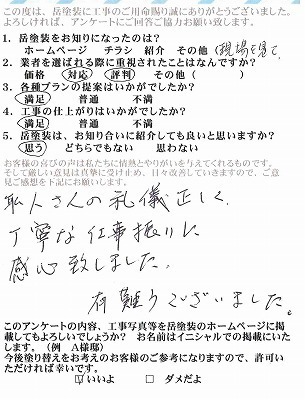 この度は、岳塗装に工事のご用命賜り誠にありがとうございました。
よろしければ、アンケートにご回答ご協力お願い致します。
1. 岳塗装をお知りになったのは?
ホームページ　チラシ　紹介　その他(現場を見て
2. 業者を選ばれる際に重視されたことはなんですか?
価格　対応　評判　その他（　　　）
3. 各種プランの提案はいかがでしたか?
満足　普通　不満
4. 工事の仕上がりはいかがでしたか?
満足　普通　不満
5. 岳塗装は、お知り合いに紹介しても良いと思いますか?
思う　どちらでもない　思わない
お客様の喜びの声は私たちに情熱とやりがいを与えてくれるものです。
そして厳しい意見は真摯に受け止め、日々改善していきますので、ご意
見ご感想を下記にお願いします。
職人さんの礼儀正しく、
丁寧な仕事振りに
感心致しました。
有難うございました。
このアンケートの内容、工事写真等を岳塗装のホームページに掲
載してもよろしいでしょうか?　お名前はイニシャルでの掲載にいた
します。（例　A様邸）
今後塗り替えをお考えのお客様のご参考になりますので、許可い
ただければ幸いです。
☑いいよ　□ ダメだよ